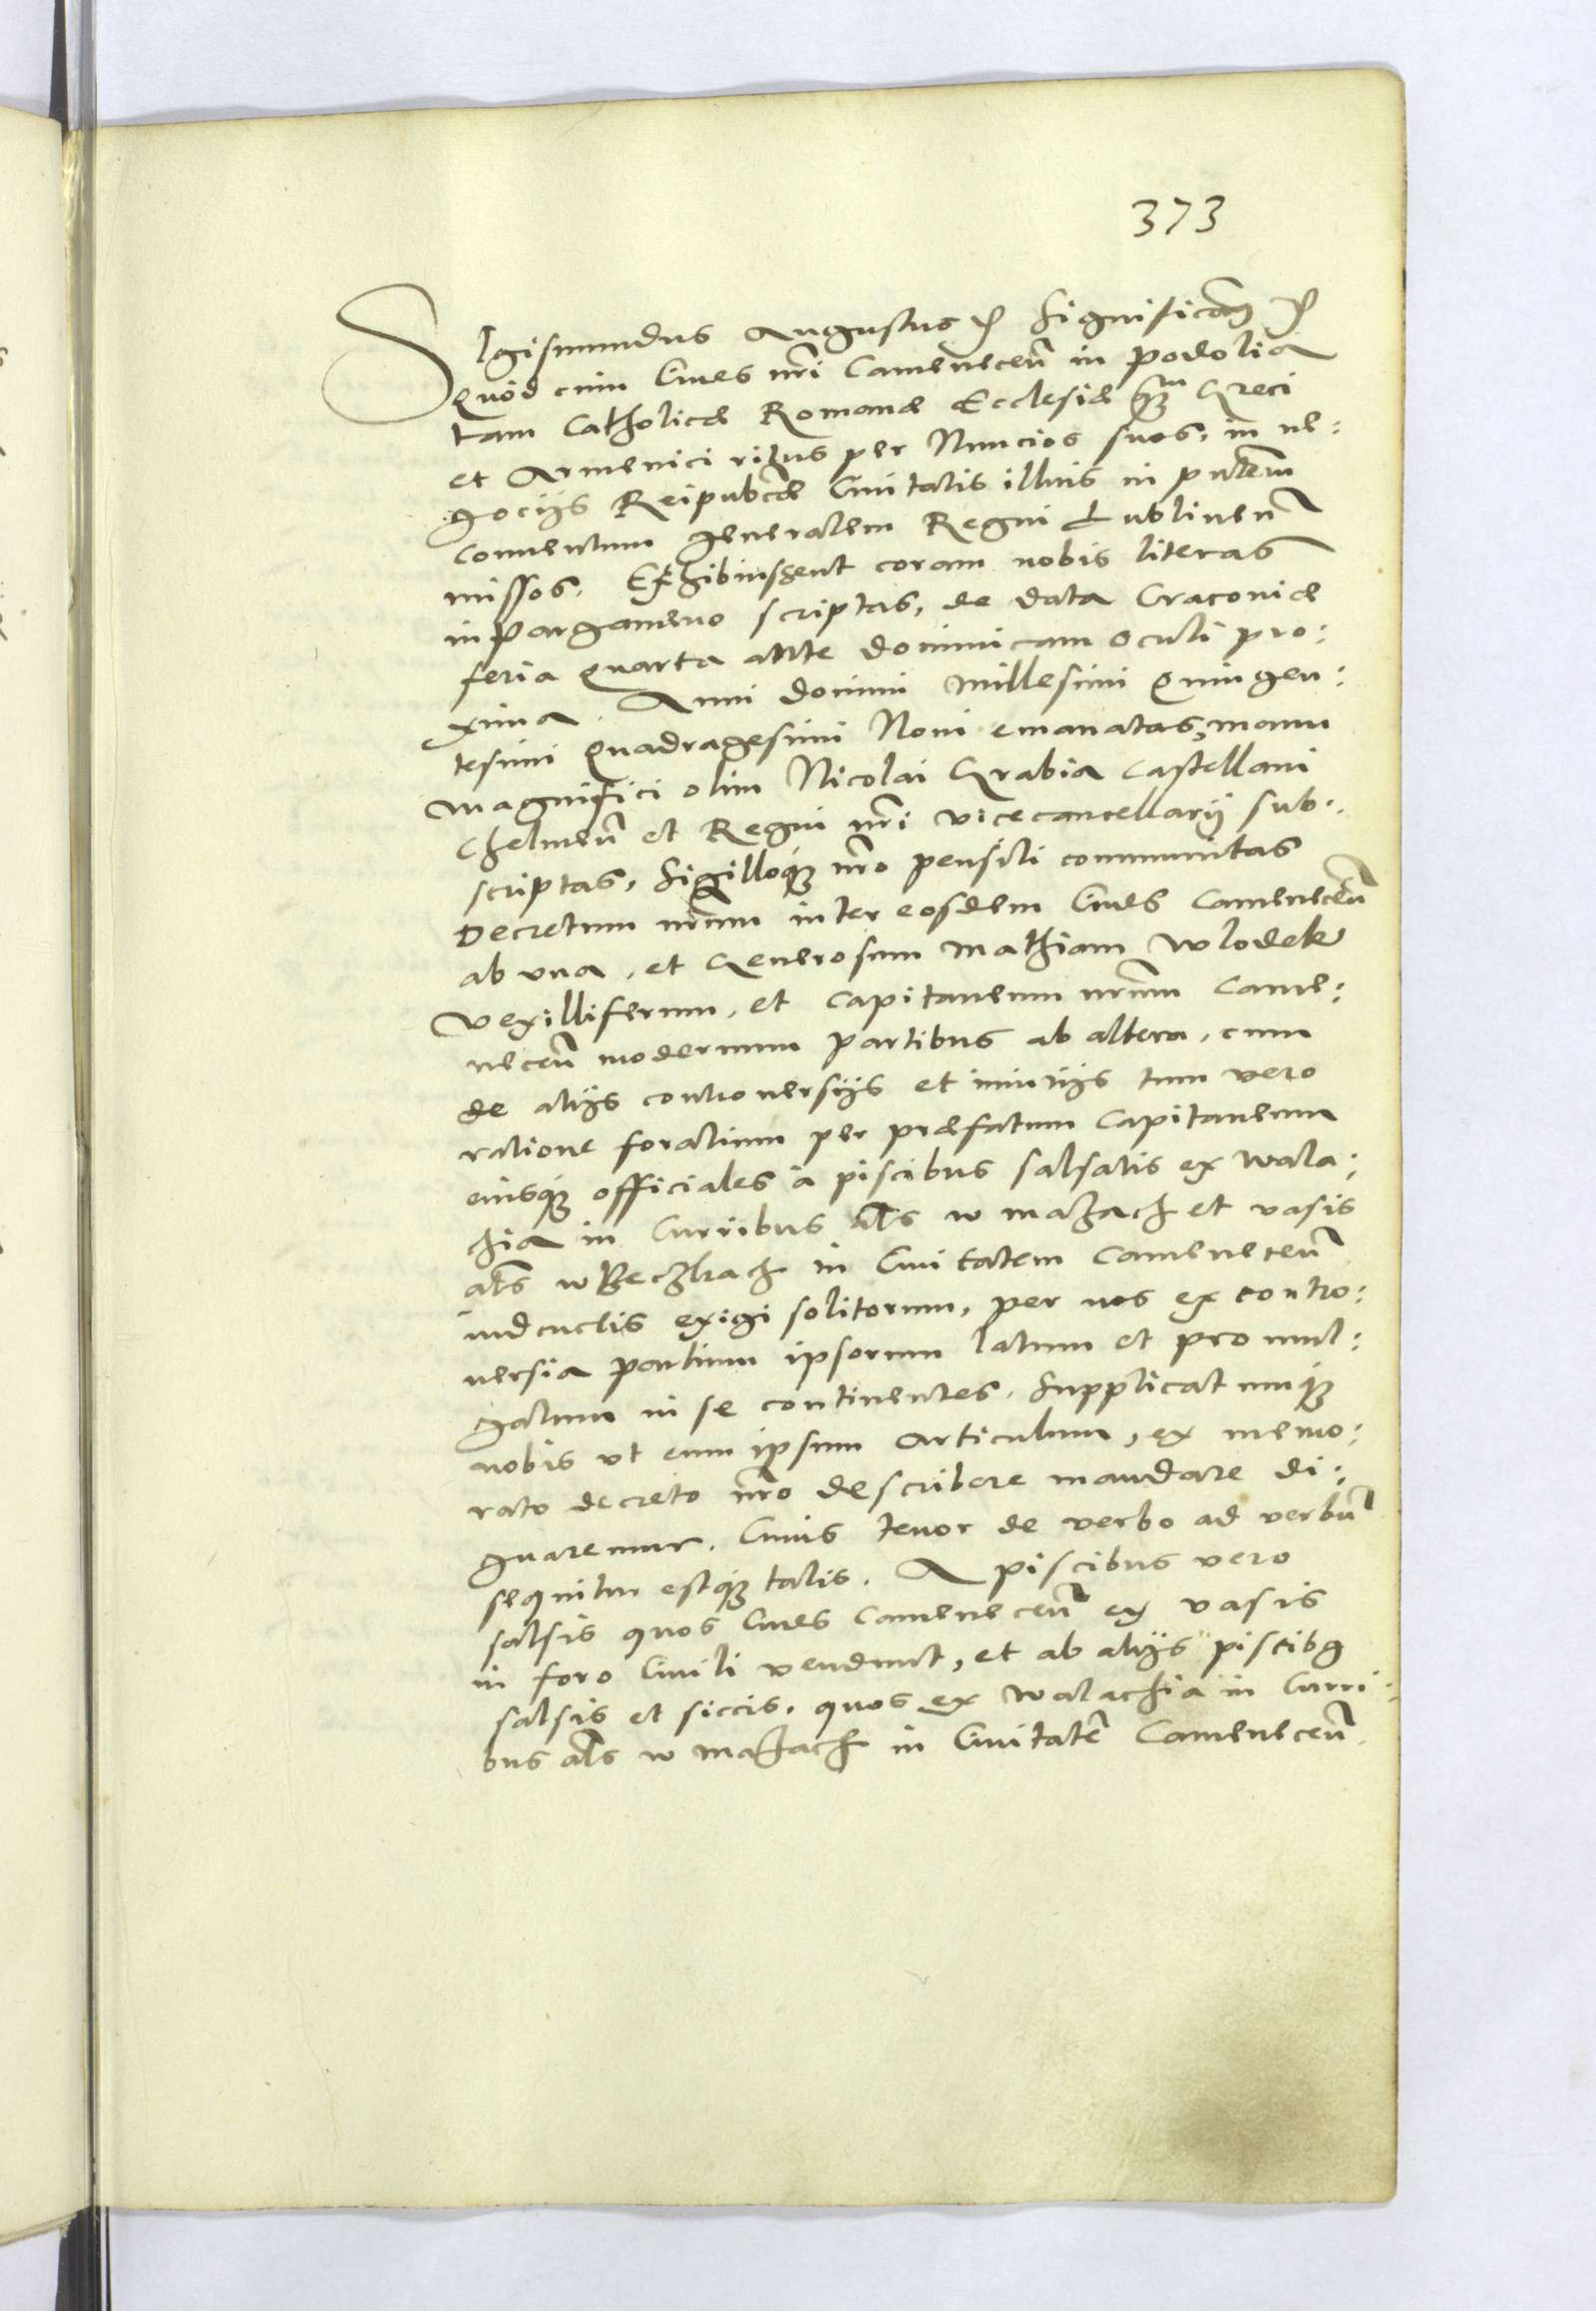 373
Sigismundus Augustus etc Significam9 etc
Quod cum Ciues nrī Camenecen̄ in Podolia
tam Catholicæ Romanæ Ecclesiæ quam Greci
et Armenici ritus per Nuncios suos, in ne:
gocijs Reipubcæ Ciuitatis illius in pn̄tem
Conuentum generalem Regni Lublinen̄
missos. Exhibuissent coram nobis literas
in Pargameno scriptas, de data Cracouiæ
feria quarta ante dominicam Oculi pro:
xima. Anni domini Millesimi Quingen:
tesimi Quadragesimi Noni emanatas, manu
Magnifici olim Nicolai Grabia Castellani
Chelmen̄ et Regni nrī Vicecancellarij sub:
scriptas, Sigilloq3 nrō pensili communitas
Decretum nrūm inter eosdem Ciues Camenecen̄
ab vna, et Generosum Mathiam Wlodek
Vexilliferum, et Capitaneum nrūm Came:
necen̄ modernum partibus ab altera, cum
de alijs controuersijs et iniurijs tum vero
ratione foralium per præfatum Capitaneum
eiusq3 officiales a piscibus salsatis ex Wala:
chia in Curribus als w mazach et vasis
als w Beczkach in Ciuitatem Camenecen̄
inductis exigi solitorum, per nos ex contro:
uersia partium ipsorum latum et promul:
gatum in se continentes. Supplicatumq3
nobis vt eum ipsum articulum, ex memo:
rato decreto nrō describere mandare di:
gnaremur. Cuius tenor de verbo ad verbū
sequitur estq3 talis. A piscibus vero
salsis quos Ciues Camenecen̄ ex vasis
in foro Ciuili vendunt, et ab alijs piscib9
salsis et siccis, quos ex Walachia in Curri:
bus als w mazach in Ciuitatē Camenecen̄